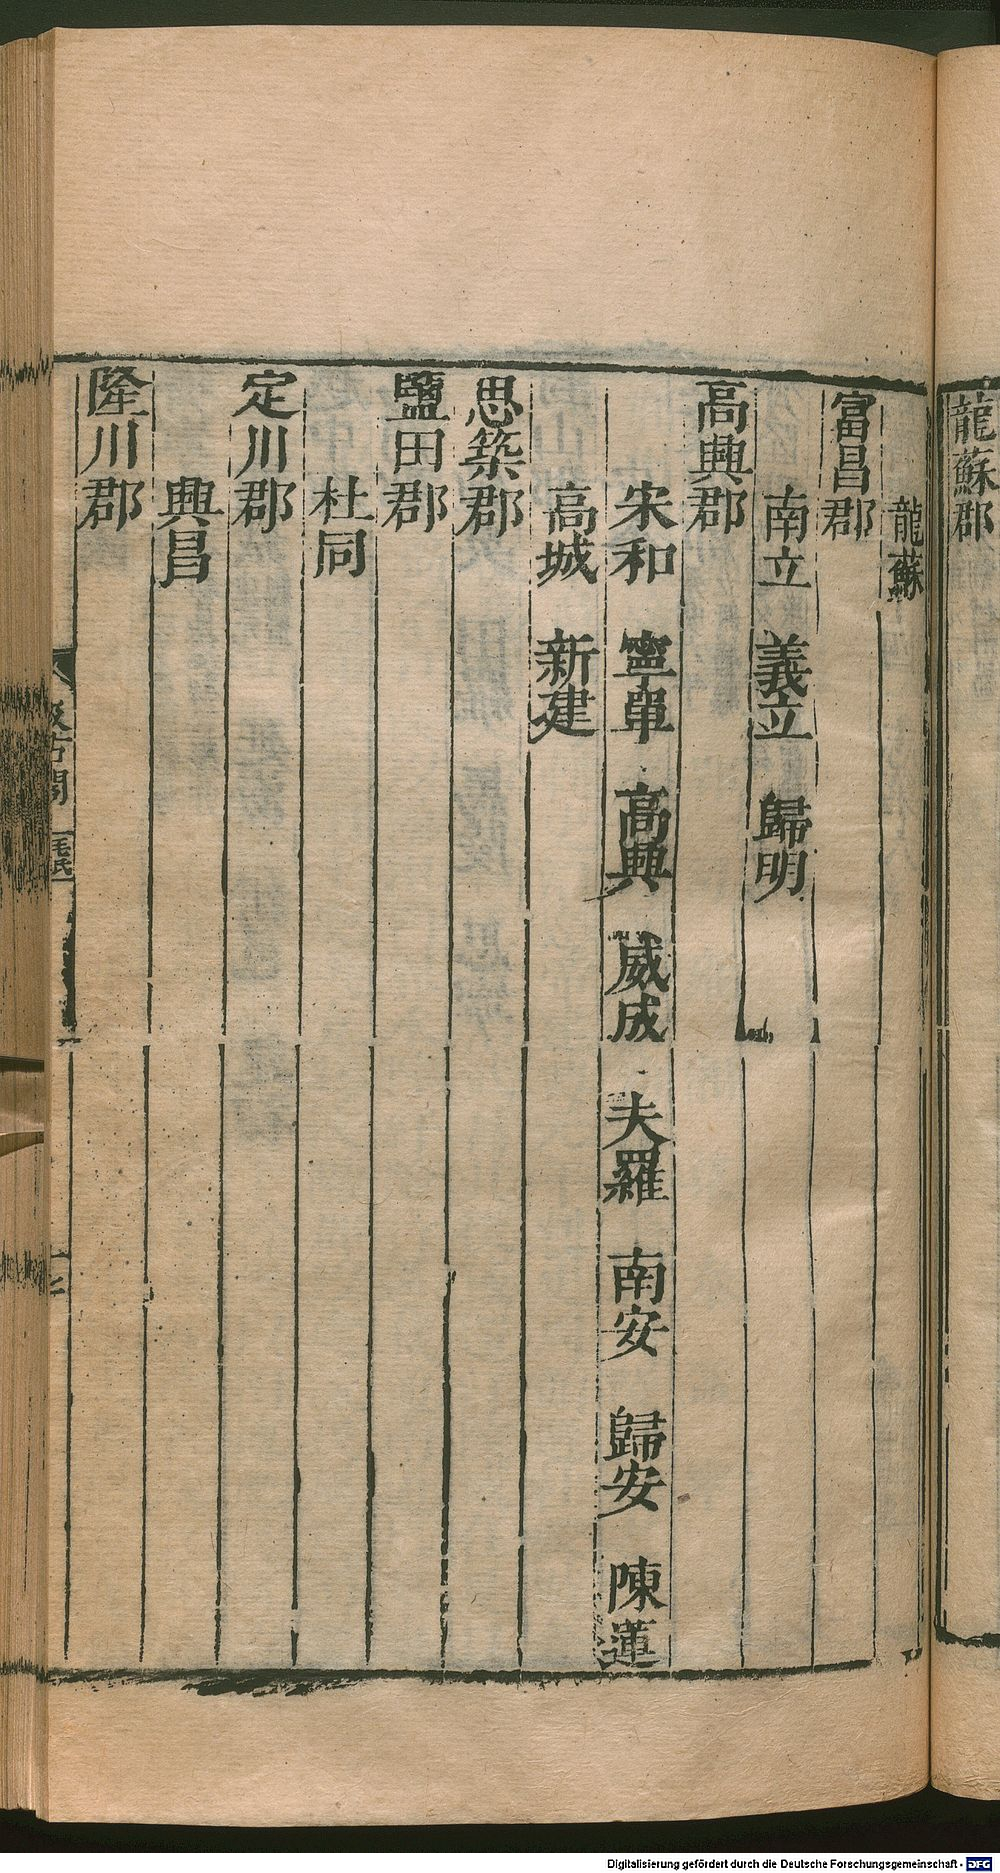 龍蘇郡
龍蘇
富昌郡
南立　義立　歸明
高興郡
宋和　寧單　高興　威成　夫羅　南安　歸安　陳蓮
高城　新建
思築郡
鹽田郡
杜同
定川郡
興昌
隆川郡
汲古閣
毛氏
Digitalisierung gefördert durch die Deutsche Forschungsgemeinschaft - DFG